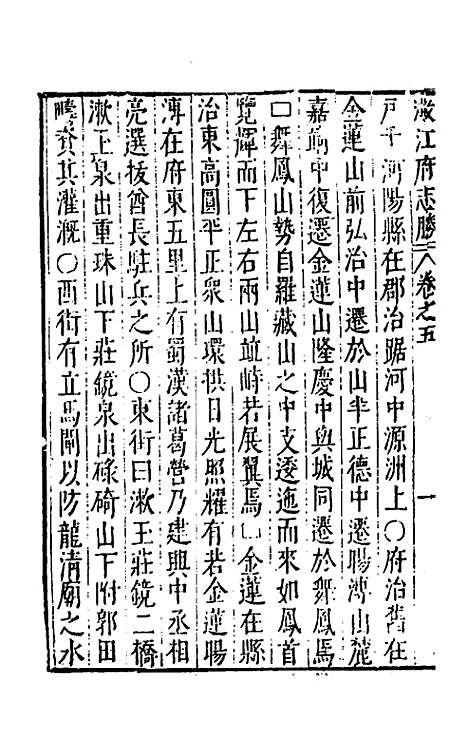 澂江府志勝 卷之五 一
戶于河陽縣在郡治踞河中源洲上○府治舊在
金蓮山前弘治中遷於山半正德中遷暘溥山麓
嘉靖中復遷金蓮山隆慶中與城同遷於舞鳳焉
□舞鳳山勢自羅藏山之中支逶迤而來如鳳首
覽輝而下左右兩山並峙若展翼焉□金蓮在縣
治東高圓平正衆山環拱日光照耀有若金蓮暘
溥在府東五里上有蜀漢諸葛營乃建興中丞相
亮選拔酋長駐兵之所○東街曰漱玉莊鏡二橋
漱玉泉出重珠山下莊鏡泉出碌碕山下附郭田
疇資其灌溉○西街有立馬閘以防龍清廟之水